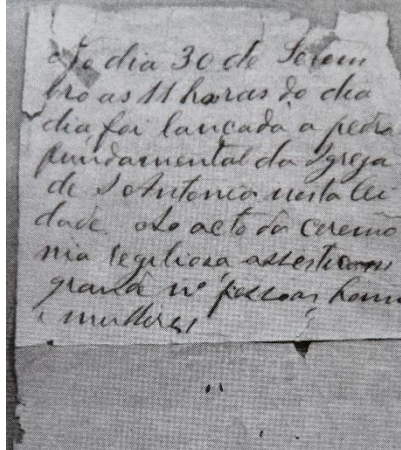 No dia 30 de
bro as 11 horas do dia
dia foi lançada a pedra
fundamental da Igreja
de S Antonio nesta Ci
dade. Ao acto da ceremo
nia regiliosa assestiram
grand nº pessoas hom
e mulheres